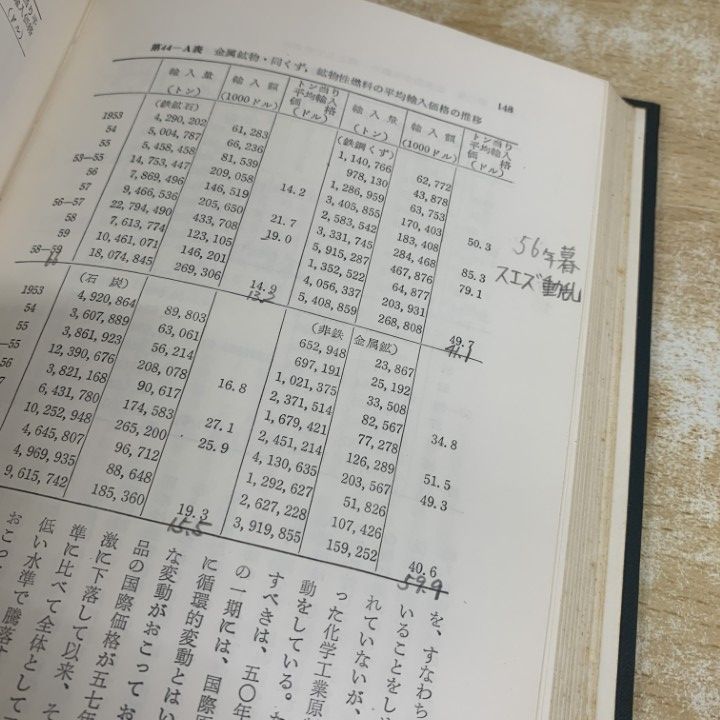 148
第44―A表 金属鉱物・同くず，鉱物性燃料の平均輸入価格の推移
輸入量(トン) 輸入額(1000ドル) トン当り平均輸入価格(ドル) 輸入量(トン) 輸入額(1000ドル) トン当り平均輸入価格(ドル)
(鉄鉱石) (鉄鋼くず)
1953 4,290,202 61,283 1,140,766 62,772
54 5,004,787 66,236 978,130 43,878
55 5,458,458 81,539 1,286,959 63,753
53―55 14,753,447 209,058 14.2 3,405,855 170,403 50.3
56 7,869,496 146,519 2,583,542 183,408
57 9,466,536 205,650 21.7 3,331,745 284,468 85.3
56―57 22,794,490 433,708 19.0 5,915,287 467,876 79.1
58 7,613,774 123,105 1,352,522 64,877
59 10,461,071 146,201 4,056,337 203,931
58―59 18,074,845 269,306 14.9 5,408,859 268,808 49.7
56年暮
スエズ動乱
(石炭) (非鉄金属鉱)
1953 4,920,864 89,803 652,948 23,867
54 3,607,889 63,061 697,191 25,192
55 3,861,923 56,214 1,021,375 33,508
―55 12,390,676 208,078 16.8 2,371,514 82,567 34.8
56 3,821,168 90,617 1,679,421 77,278
57 6,431,780 174,583 27.1 2,451,214 126,289 51.5
10,252,948 265,200 25.9 4,130,635 203,567 49.3
4,645,807 96,712 1,292,627 51,826
4,969,935 88,648 2,627,228 107,426
9,615,742 185,360 19.3 3,919,855 159,252 40.6
15.5 59.9
を、すなわち
いることをし
れていないが、
った化学工業原
動をしている。
すべきは、五〇年
の一期には、国際
に循環的変動とはい
な変動がおこってお
品の国際価格が五七年
激に下落して以来、そ
準に比べて全体として
低い水準で騰落
おこっ